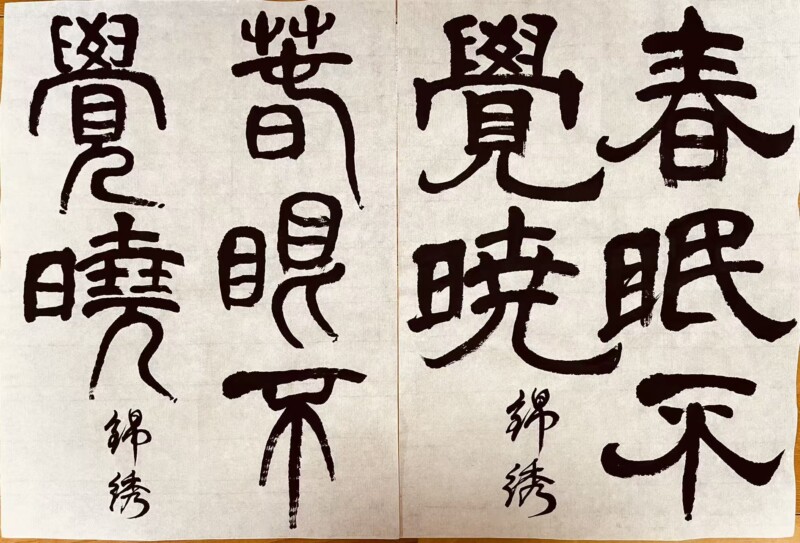 春眠不
覺暁
錦綉
萅眠不
覺曉
錦綉